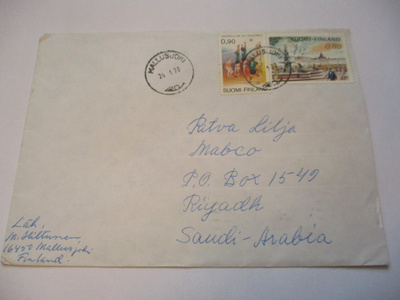 MALLUSJOKI
0,90
SUOMI FINLAND
SUOMI-FINLAND
0,80
Ritva Lilja
Mabco
P.O. Box 1549
Riyadh
Saudi-Arabia
Läh.
M.
16450 Mallusjoki
Finland